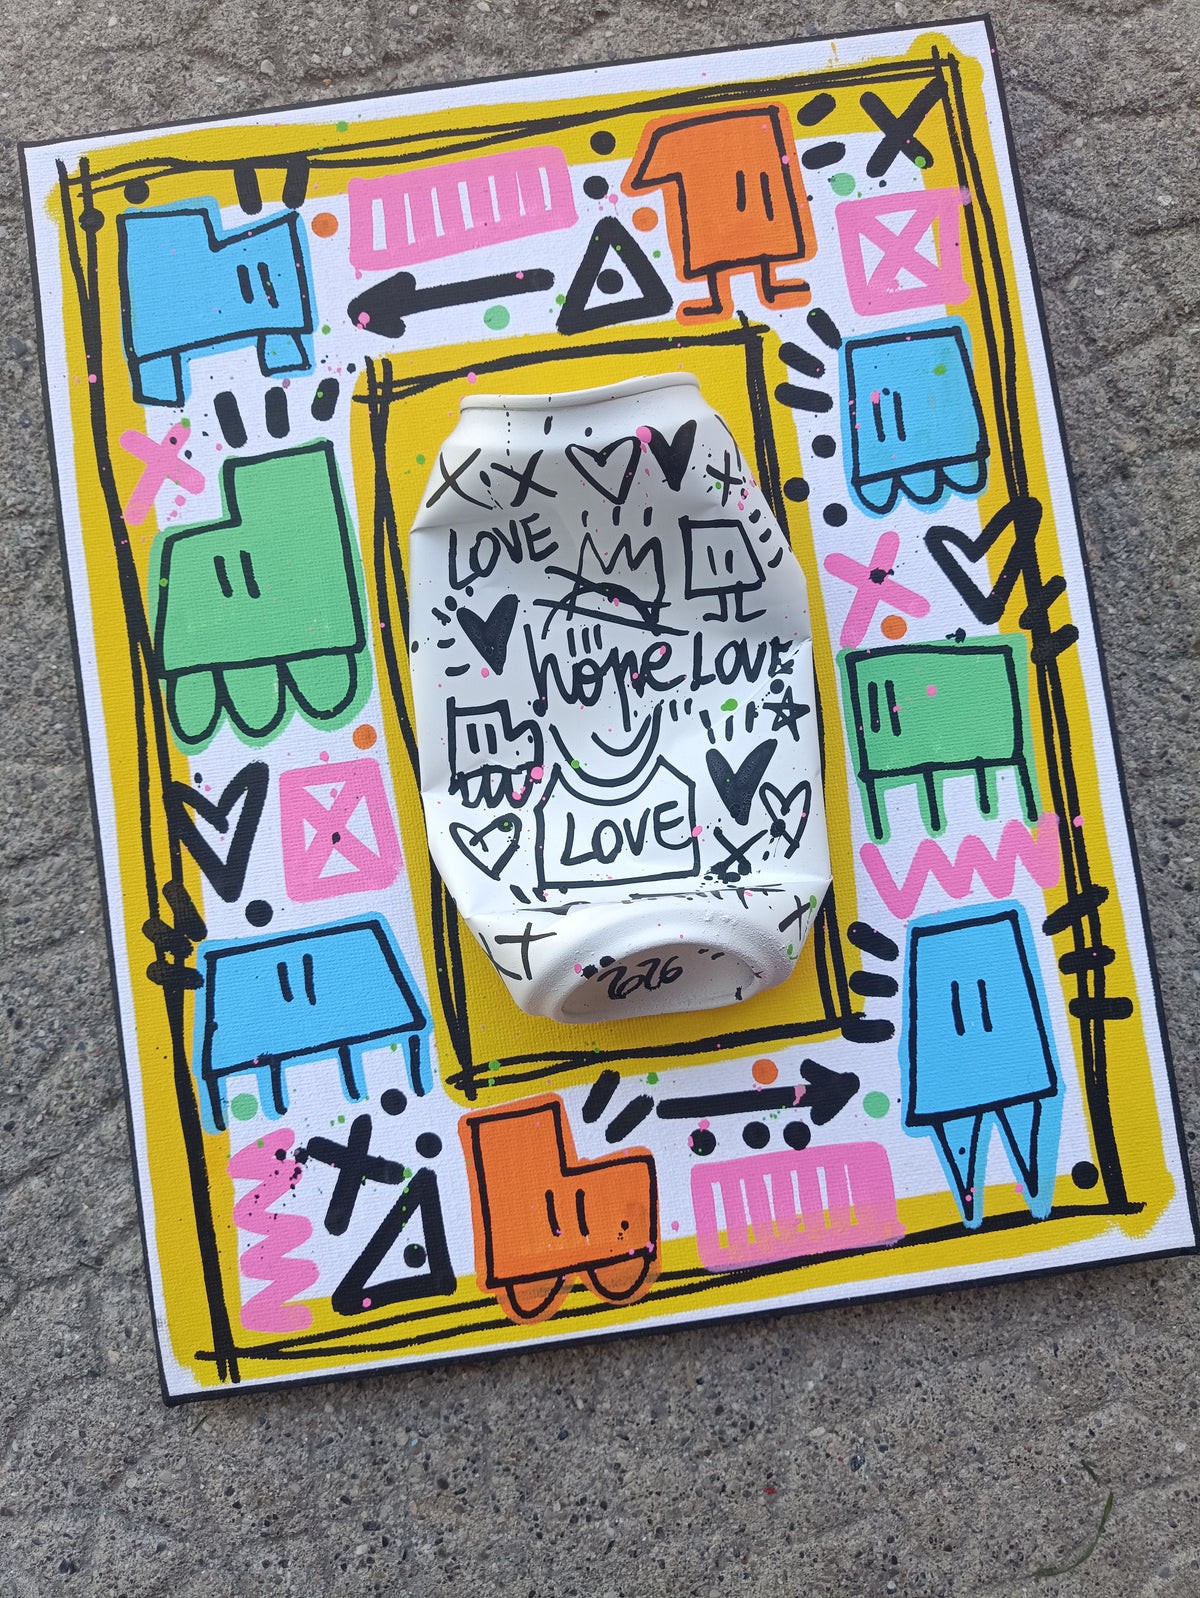 LOVE
hope LOVE
LOVE
2026